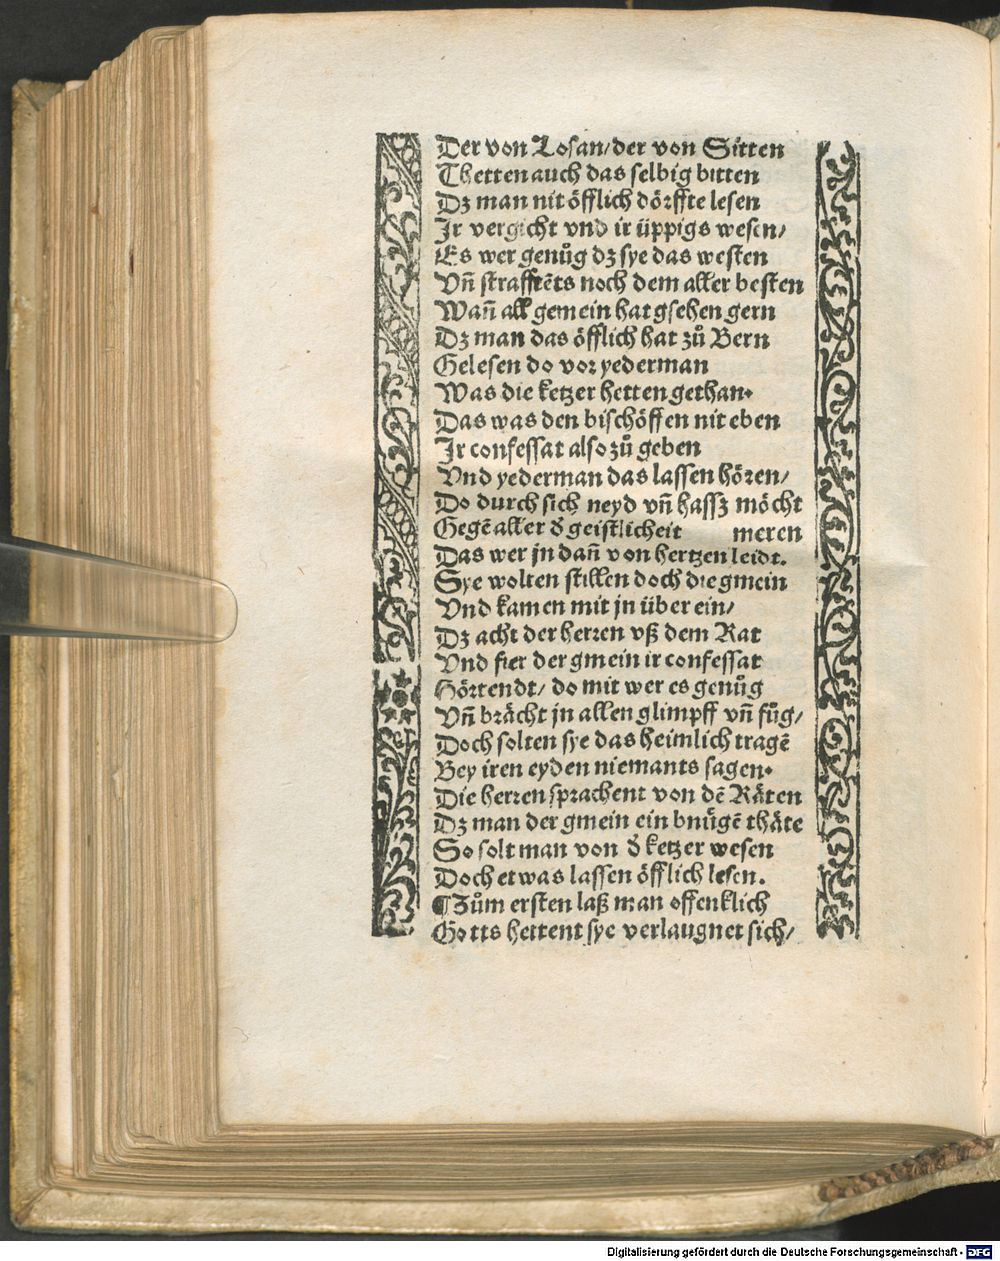 Der von Losan/der von Sitten
Thetten auch das selbig bitten
Dz man nit öfflich dörffte lesen
Jr vergicht vnd ir üppigs wesen/
Es wer genůg dz sye das westen
Vñ strafftẽts noch dem aller besten
Wañ all gemein hat gsehen gern
Dz man das öfflich hat zů Bern
Gelesen do vor yederman
Was die ketzer hetten gethan.
Das was den bischöffen nit eben
Jr confessat also zů geben
Vnd yederman das lassen hören/
Do durch sich neyd vñ hassz möcht
Gegẽ aller d̕ geistlicheit meren
Das wer jn dañ von hertzen leidt.
Sye wolten stillen doch die gmein
Vnd kamen mit jn über ein/
Dz acht der herren vß dem Rat
Vnd fier der gmein ir confessat
Hörtendt/ do mit wer es genůg
Vñ brächt jn allen glimpff vñ fůg/
Doch solten sye das heimlich tragẽ
Bey iren eyden niemants sagen.
Die herren sprachent von dẽ Räten
Dz man der gmein ein bnügẽ thäte
So solt man von d̕ ketzer wesen
Doch etwas lassen öfflich lesen.
¶Zům ersten laß man offenklich
Gotts hettent sye verlaugnet sich/
Digitalisierung gefördert durch die Deutsche Forschungsgemeinschaft - DFG